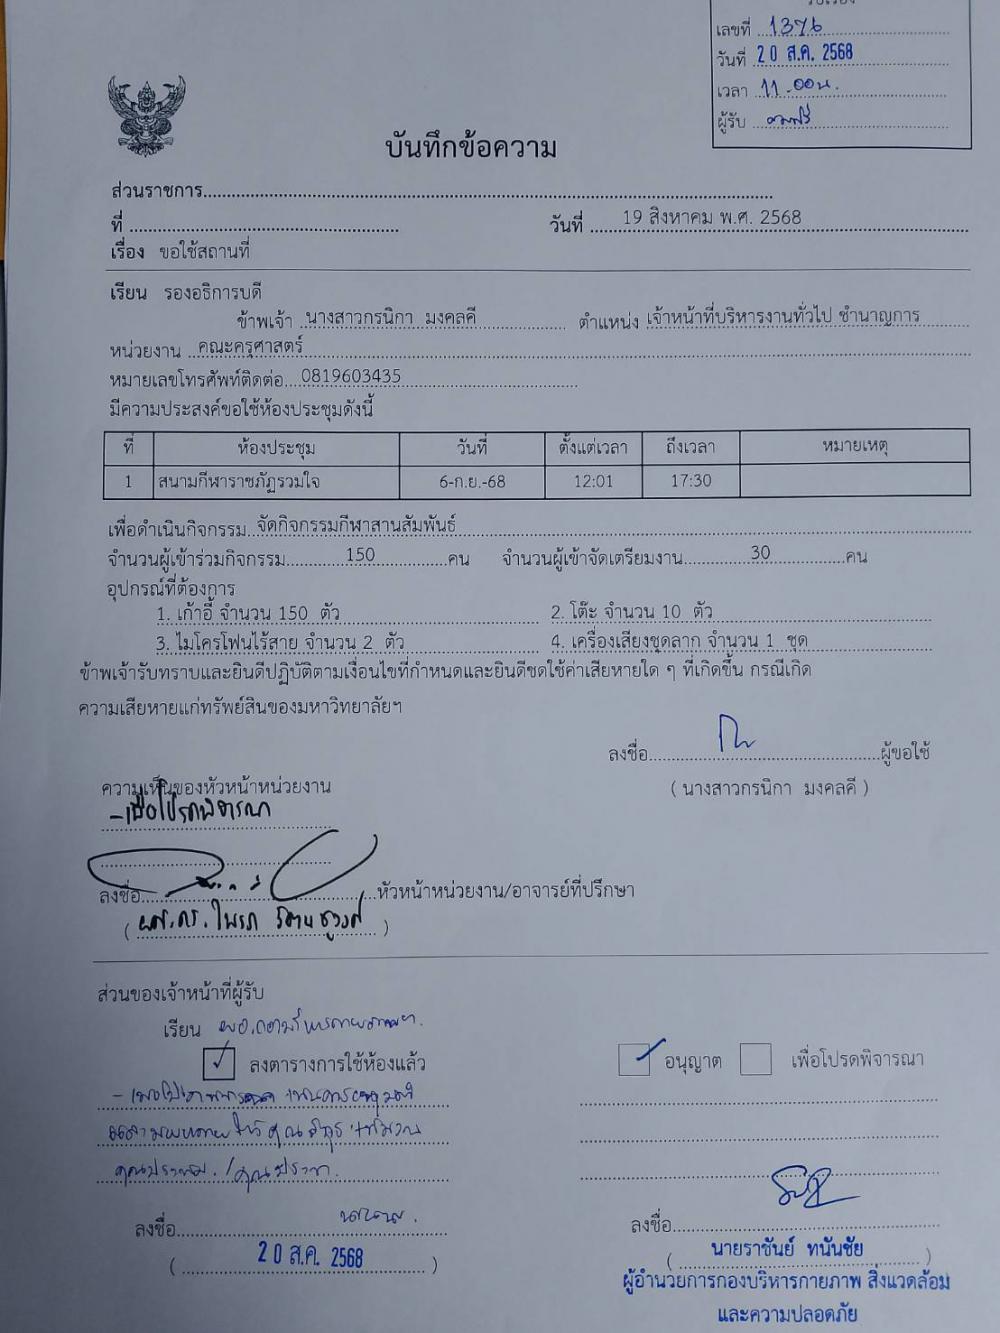 เลขที่ 1376
วันที่ 20 ส.ค. 2568
เวลา 11.00น.
ผู้รับ
บันทึกข้อความ
ส่วนราชการ
ที่ วันที่ 19 สิงหาคม พ.ศ. 2568
เรื่อง ขอใช้สถานที่
เรียน รองอธิการบดี
ข้าพเจ้า นางสาวกรนิกา มงคลคี ตำแหน่ง เจ้าหน้าที่บริหารงานทั่วไป ชำนาญการ
หน่วยงาน คณะครุศาสตร์
หมายเลขโทรศัพท์ติดต่อ 0819603435
มีความประสงค์ขอใช้ห้องประชุมดังนี้
ที่ ห้องประชุม วันที่ ตั้งแต่เวลา ถึงเวลา หมายเหตุ
1 สนามกีฬาราชภัฏรวมใจ 6-ก.ย.-68 12:01 17:30
เพื่อดำเนินกิจกรรม จัดกิจกรรมกีฬาสานสัมพันธ์
จำนวนผู้เข้าร่วมกิจกรรม 150 คน จำนวนผู้เข้าจัดเตรียมงาน 30 คน
อุปกรณ์ที่ต้องการ
1. เก้าอี้ จำนวน 150 ตัว 2. โต๊ะ จำนวน 10 ตัว
3. ไมโครโฟนไร้สาย จำนวน 2 ตัว 4. เครื่องเสียงชุดลาก จำนวน 1 ชุด
ข้าพเจ้ารับทราบและยินดีปฏิบัติตามเงื่อนไขที่กำหนดและยินดีชดใช้ค่าเสียหายใด ๆ ที่เกิดขึ้น กรณีเกิด
ความเสียหายแก่ทรัพย์สินของมหาวิทยาลัยฯ
ลงชื่อ ผู้ขอใช้
( นางสาวกรนิกา มงคลคี )
ความเห็นของหัวหน้าหน่วยงาน
- เพื่อโปรดพิจารณา
ลงชื่อ หัวหน้าหน่วยงาน/อาจารย์ที่ปรึกษา
( ผศ.ดร. )
ส่วนของเจ้าหน้าที่ผู้รับ
เรียน
ลงตารางการใช้ห้องแล้ว อนุญาต เพื่อโปรดพิจารณา
ลงชื่อ ลงชื่อ
( 20 ส.ค. 2568 ) ( นายราชันย์ ทนันชัย )
ผู้อำนวยการกองบริหารกายภาพ สิ่งแวดล้อม
และความปลอดภัย